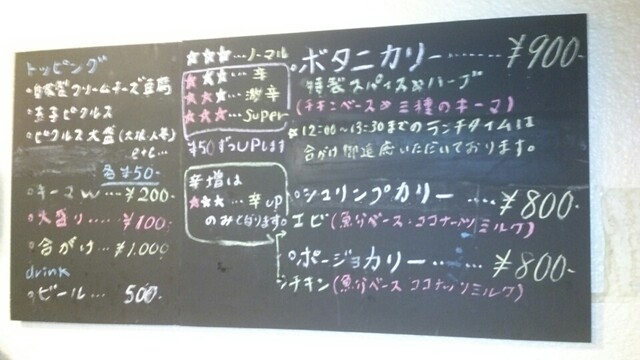 トッピング
自家製クリームチーズ豆腐
玉子ピクルス
ピクルス大盛(大根,人参)
etc...
各¥50-
キーマW....¥200-
大盛り....¥100-
合がけ...¥1,000-
drink
ビール... 500-
★★★...ノーマル
★★★...辛
★★★...激辛
★★★...Super
¥50ずつUPします
辛増は
★★★...辛up
のみとなります。
ボタニカリー........¥900-
特製スパイス&ハーブ
(チキンベース&三種のキーマ)
※12:00〜13:30までのランチタイムは
合がけ御遠慮いただいております。
シュリンプカリー.....¥800-
エビ(魚介ベース・ココナッツミルク)
ポージョカリー.....¥800-
チキン(魚介ベース ココナッツミルク)